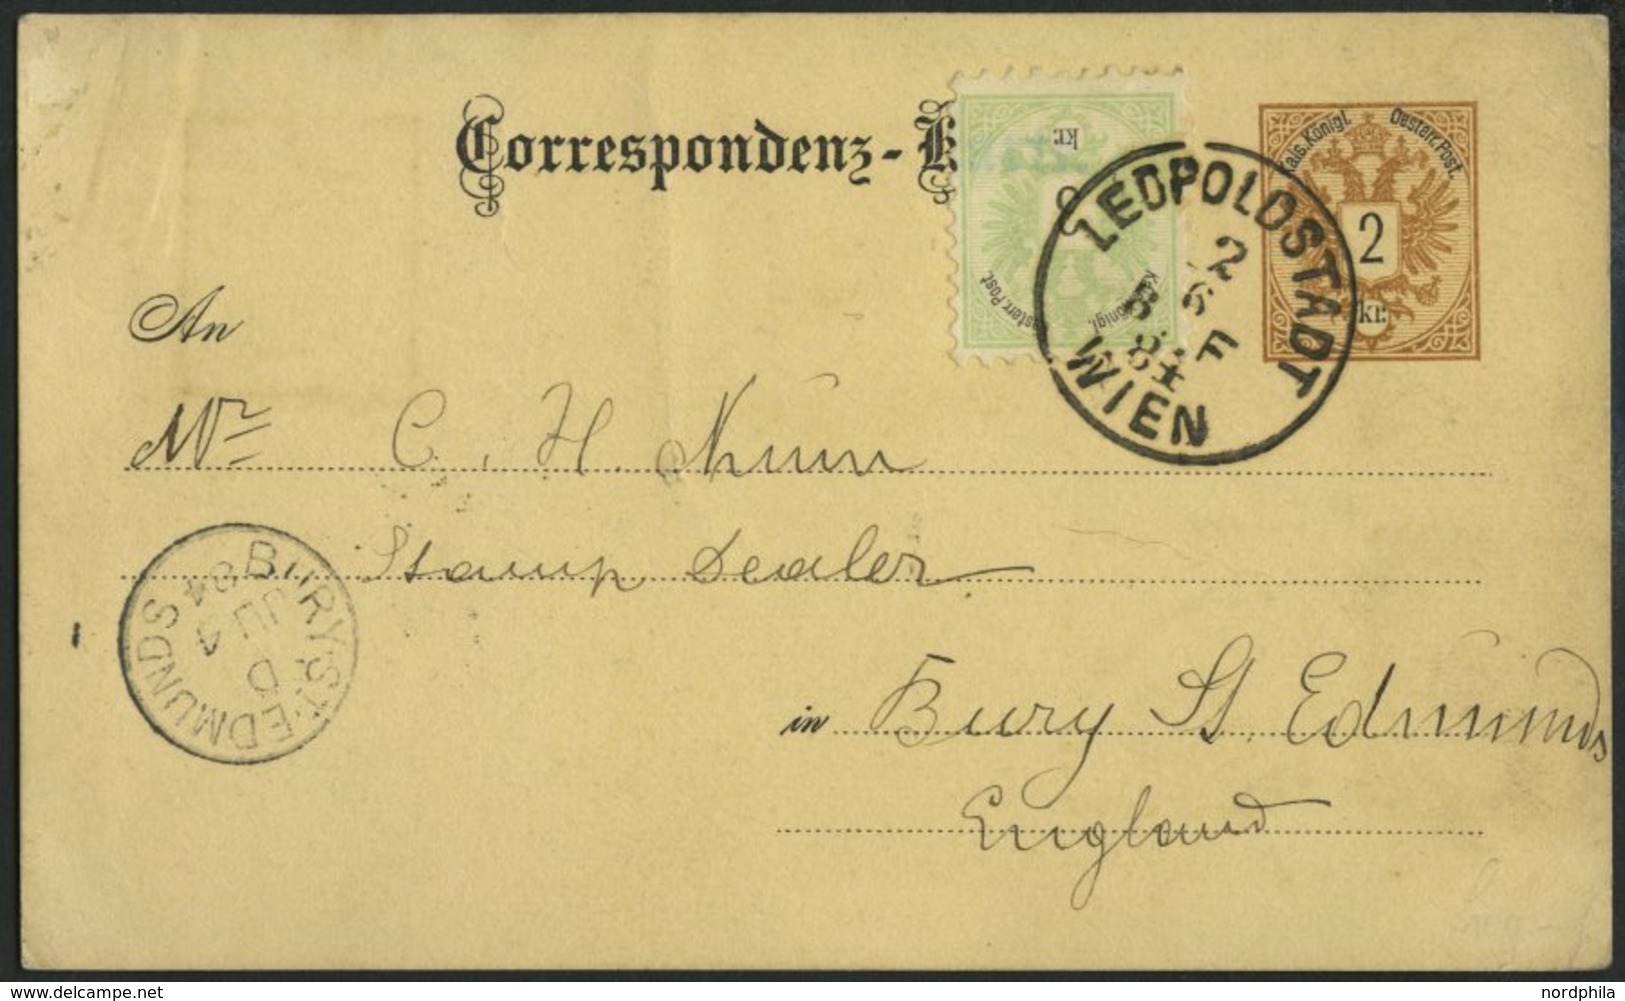 Correspondenz-K
kr.
Oesterr. Post.
Kais. Königl.
Kais. Königl. Oesterr. Post.
2
kr.
LEOPOLDSTADT
2
6
84
F
WIEN
An
Mr C. H. Nunn
Stamp Dealer
in Bury St. Edmunds
England
BURY·ST·EDMUNDS
D
JU 4
84
© nordphila.com
nordphila